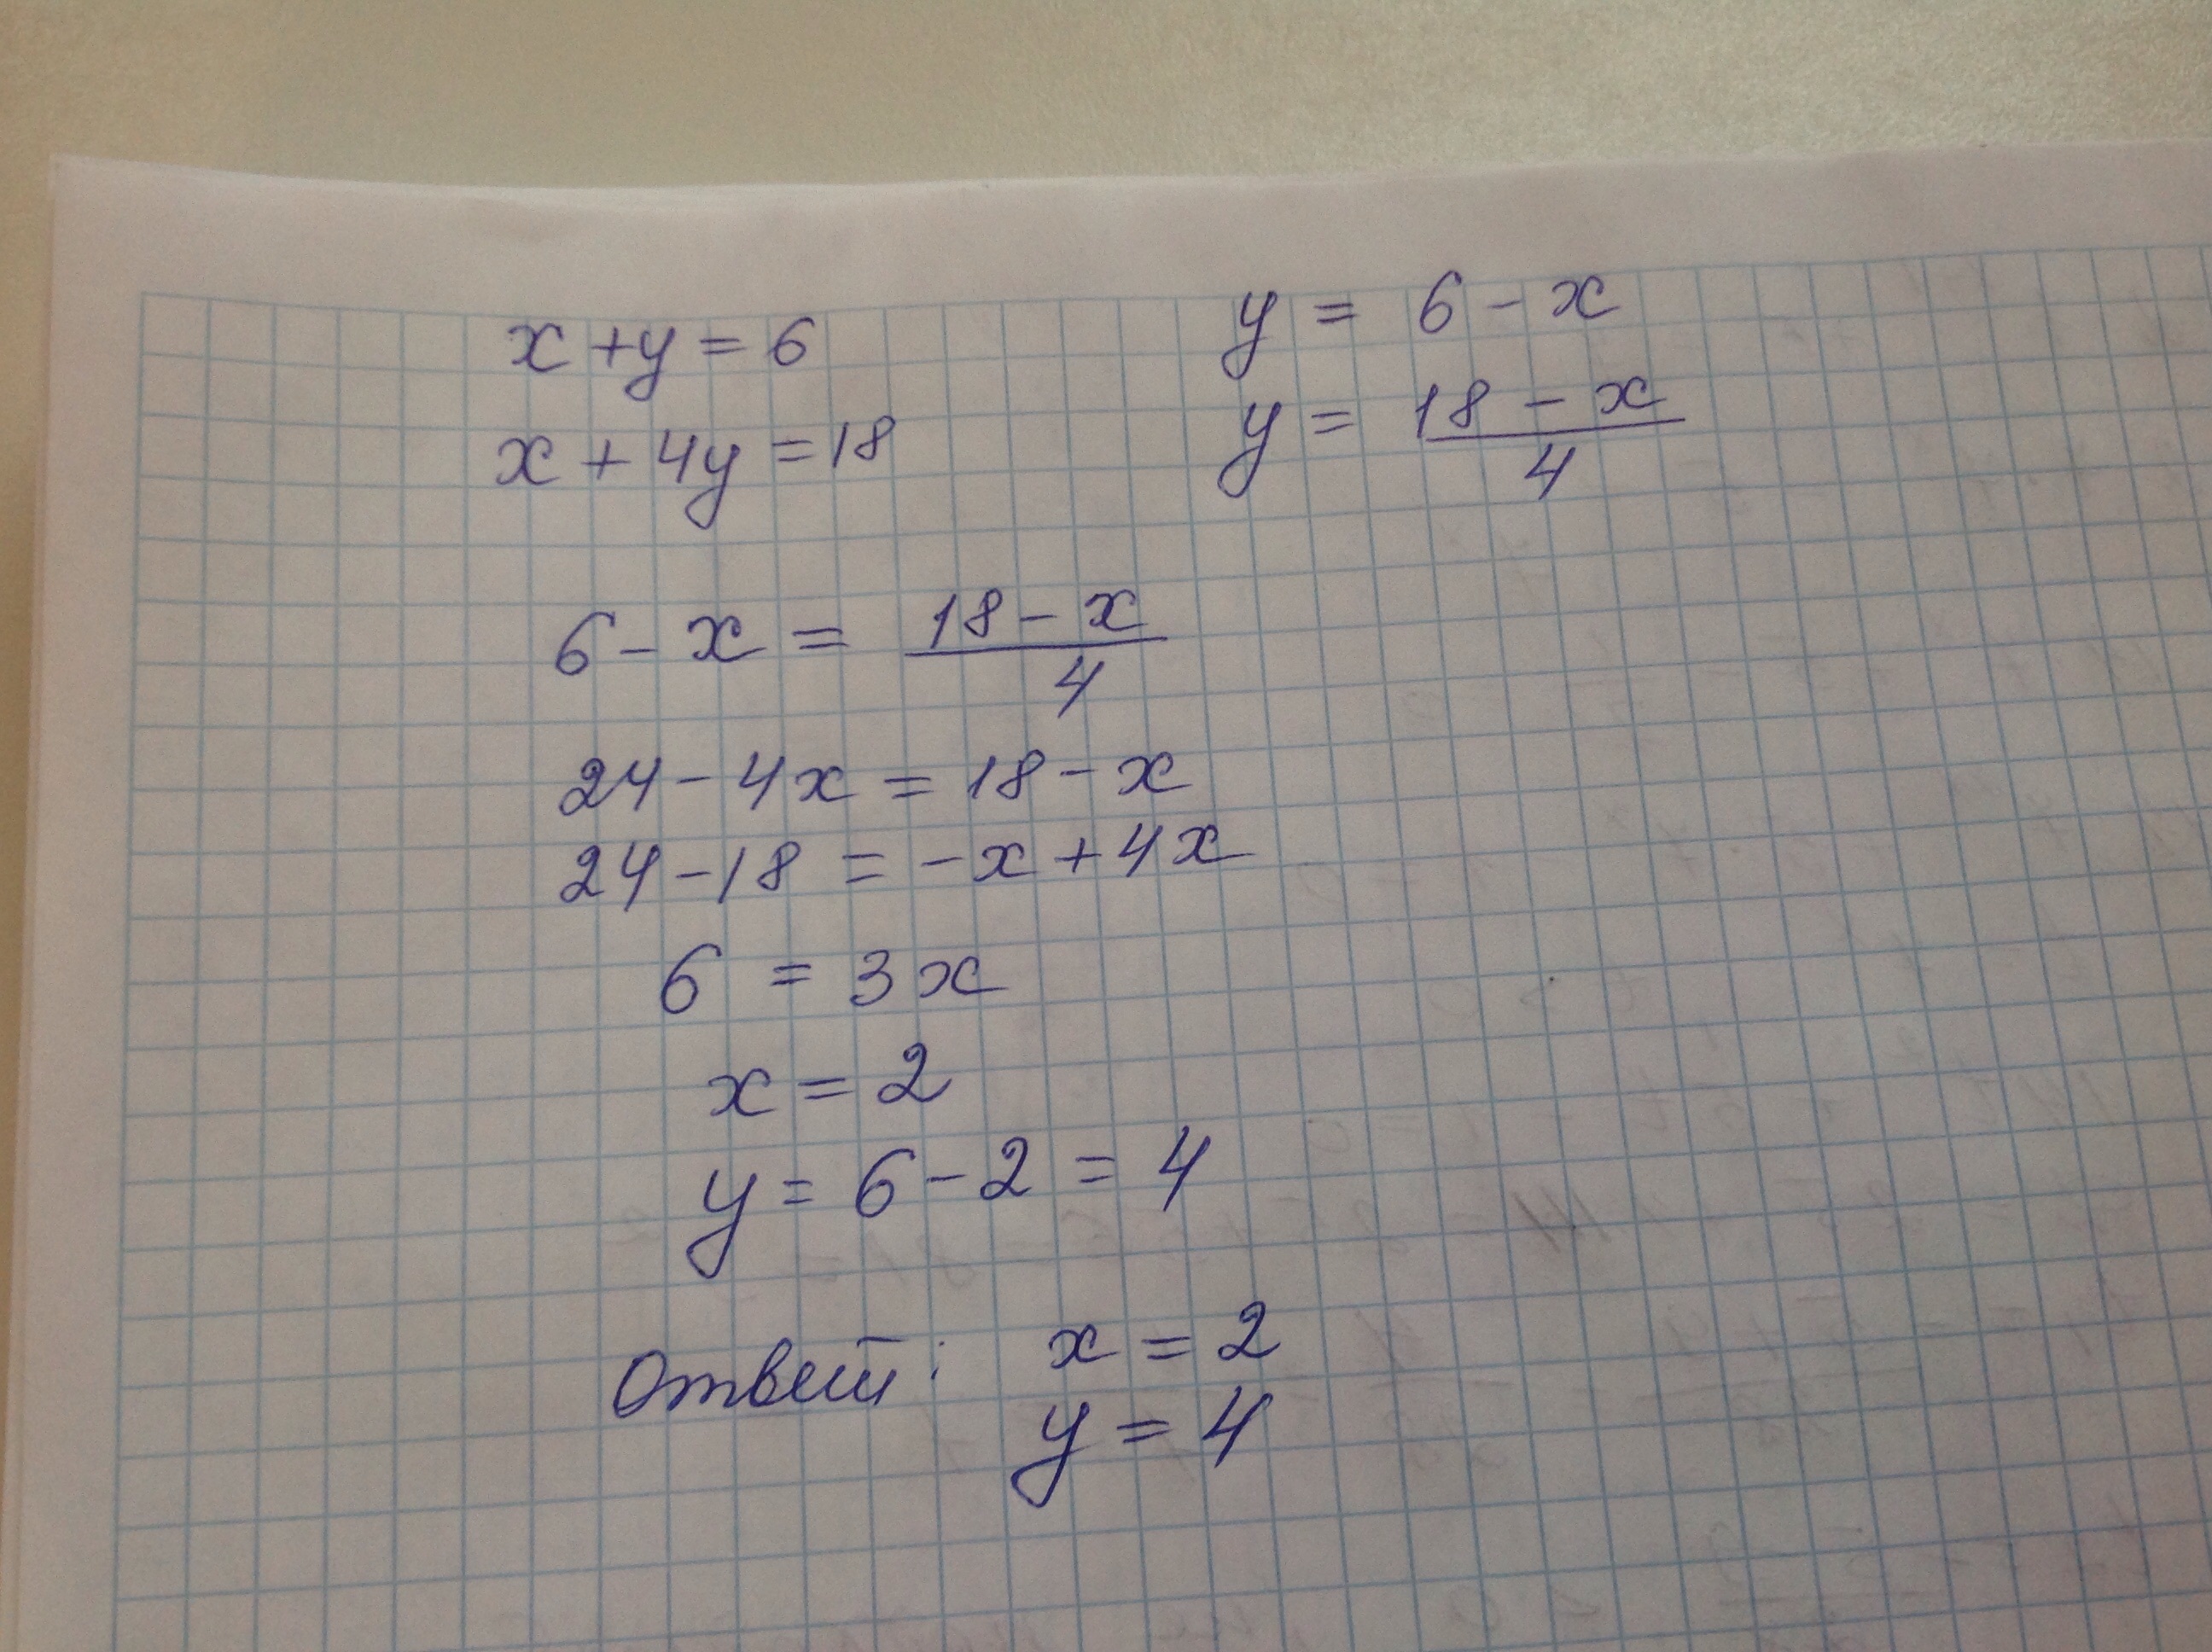 x + y = 6
y = 6 - x
x + 4y = 18
y = \frac{18 - x}{4}
6 - x = \frac{18 - x}{4}
24 - 4x = 18 - x
24 - 18 = - x + 4x
6 = 3x
x = 2
y = 6 - 2 = 4
Ответ: x = 2
y = 4